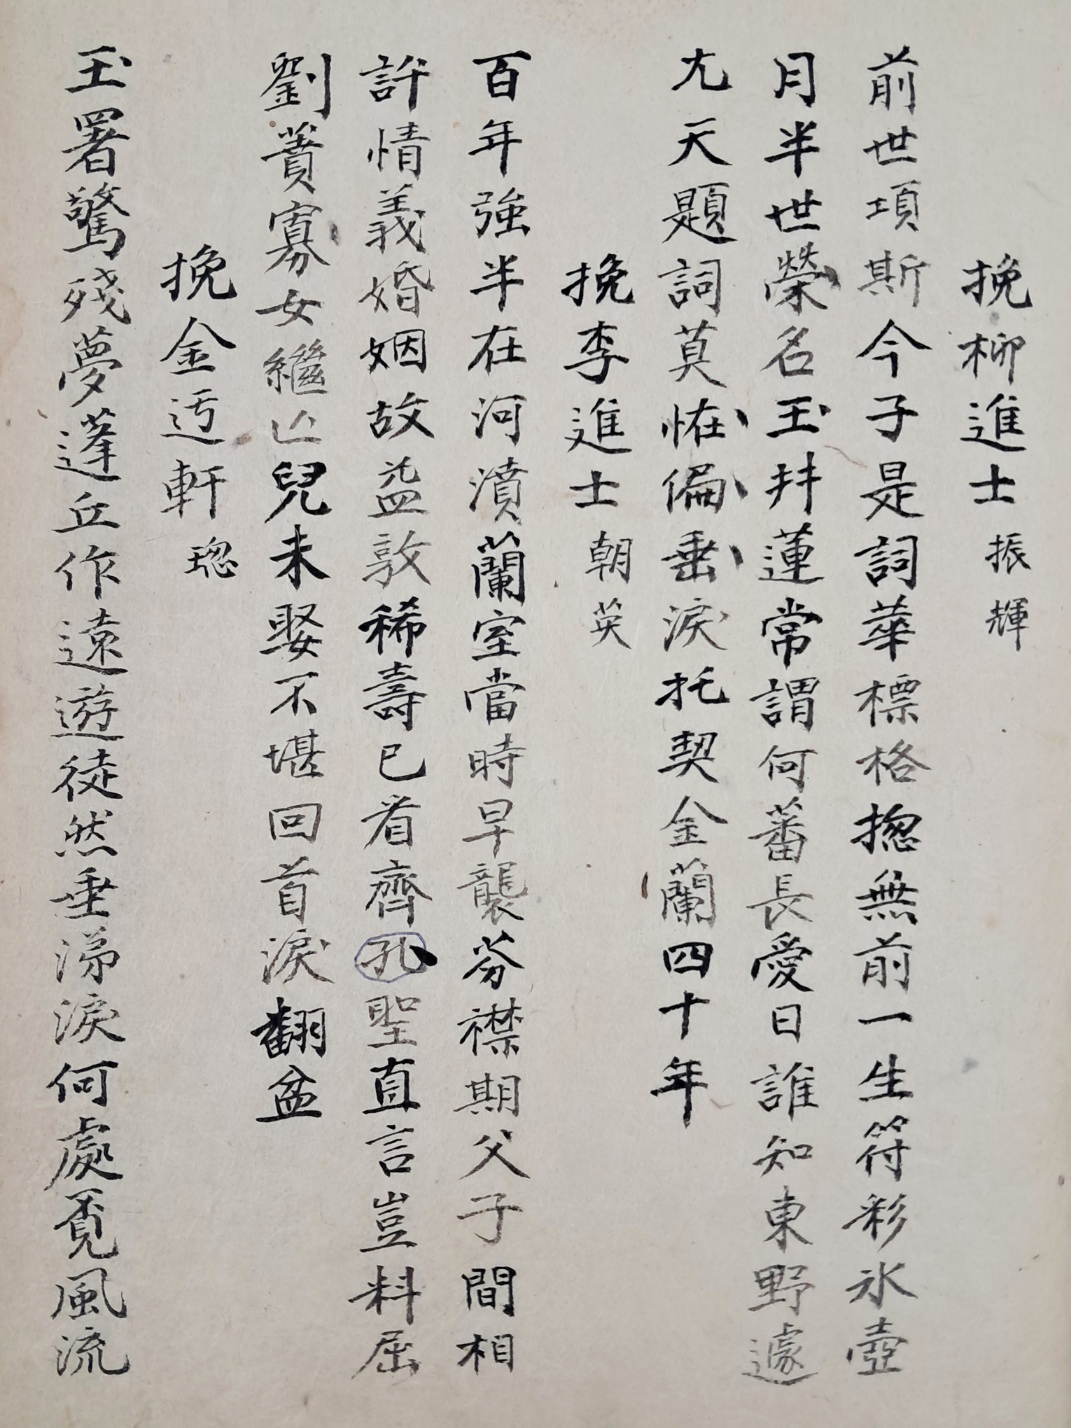 挽柳進士振輝
前世項斯今子是詞華標格揔無前一生符彩氷壺
月半世榮名玉井蓮常謂何蕃長愛日誰知東野遽
尤天題詞莫恠偏垂淚托契金蘭四十年
挽李進士朝英
百年強半在河濆蘭室當時早襲芬襟期父子間相
許情義婚姻故益敦稀壽已看齊孔聖直言豈料屈
劉蕡寡女繼亡兒未娶不堪回首淚翻盆
挽金迃軒璁
玉署驚殘夢蓬丘作遠遊徒然垂涕淚何處覔風流